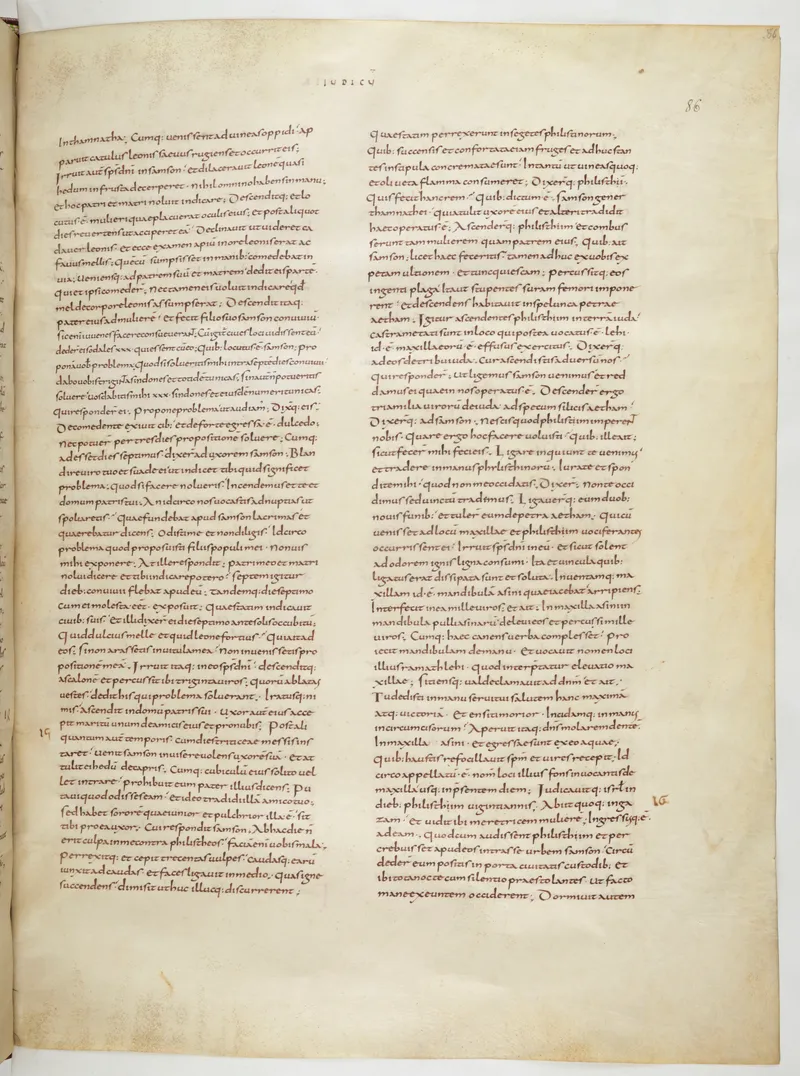 IUDICŪ
86
86
In thamnatha; Cumq: uenissent ad uineas oppidi ap
paruit catulus leonis saeuus rugiens et occurrit ei;
Irruit aut sps dni in samson et dilacerauit leonē quasi
hedum in frusta decerperet nihil omnino habens in manu;
et hoc patri et matri noluit indicare; Descenditq: et lo
cutus ē mulieri quae placuerat oculis eius; et post aliquot
dies reuertens ut acciperet eā Declinauit ut uideret ca
dauer leonis et ecce examen apiū in ore leonis erat ac
fauus mellis; Quē cū sumpsisset in manib: comedebat in
uia; ueniensq: ad patrem suū et matrem dedit eis partē
qui et ipsi comeder; nec tamen eis uoluit indicare qd
mel de corpore leonis assumpserat; Descendit itaq:
pater eius ad mulierē et fecit filio suo samson conuiuiū
sic eni iuuenes facere consueuerant; Cū igit ciues loci uidissent eū
deder ei sodales xxx qui essent cū eo; Quib: locutus ē samson; pro
ponā uob problema; quod si soluertis mihi intra septē dies conuiuii
dabo uobis triginta sindones et totidē tunicas; Sin aut n potueritis
soluere uos dabitis mihi xxx sindones et eiusdē numeri tunicas;
qui responder ei; Propone problema ut audiam; Dixitq: eis;
De comedente exiuit cib: et de forte egressa ē dulcedo;
nec potuer per tres dies propositionē soluere; Cumq:
adesset dies septimus dixer ad uxorem samson; Blan
dire uiro tuo et suade ei ut indicet tibi quid significet
problema; quod si facere nolueris Incendemus et te et
domum patris tui; An idcirco nos uocastis ad nuptias ut
spoliaretis Quae fundebat apud samson lacrimas et
quaerebatur dicens; Odisti me et non diligis Idcirco
problema quod proposuisti filiis populi mei non uis
mihi exponere; At ille respondit; patri meo et matri
nolui dicere et tibi indicare potero Septem igitur
dieb: conuiuii flebat apud eū; tandemq: die septimo
cum ei molesta eēt exposuit; Quae statim indicauit
ciuib: suis et illi dixer ei die septimo ante solis occubitū;
Quid dulcius melle et quid leone fortius Qui ait ad
eos; si non arassetis in uitula mea non inuenissetis pro
positionē meā; Irruit itaq: in eo sps dni descenditq:
ascalonē et percussit ibi triginta uiros; quorū ablatas
uestes dedit his qui problema soluerant; Iratusq: ni
mis ascendit in domū patris sui Uxor aut eius acce
pit maritū unum de amicis eius et pronubis; Post ali
15
quantum aut temporis cum dies triticeae messis ins
taret uenit samson inuisere uolens uxorē suā et at
tulit ei hedū de capris; Cumq: cubiculū eius solito uel
let intrare prohibuit eum pater illius dicens; Pu
taui quod odisses eam et ideo tradidi illā amico tuo;
sed habet sororē quae iunior et pulchrior illa ē sit
tibi pro ea uxor; Cui respondit samson; Ab hac die n
erit culpa in me contra philistheos faciā eni uobis mala;
Perrexitq: et cepit trecentas uulpes caudasq: earū
iunxit ad caudas et faces ligauit in medio; quas igne
succendens dimisit ut huc illucq: discurrerent;
Quae statim perrexerunt in segetes philistinorum;
Quib: succensis et confortatae iam fruges et adhuc stan
tes in stipula concrematae sunt Intantū ut uineas quoq:
et oliueta flamma consumeret; Dixerq: philisthii;
Quis fecit hanc rem Quib: dictum ē samson gener
thamnathei quia tulit uxorē eius et alteri tradidit
haec operatus ē; Ascenderq: philisthiim et combus
serunt tam mulierem quam patrem eius; Quib: ait
samson; licet haec feceritis tamen adhuc ex uobis ex
petam ultionem et tunc quiescam; percussitq: eos
ingenti plaga Ita ut stupentes suram femori impone
rent et descendens habitauit in spelunca petrae
aetham; Igitur ascendentes philisthiim in terrā iuda
castrametati sunt in loco qui postea uocatus ē lehi
id ē maxilla eorū ē effusus exercitus; Dixerq:
ad eos de tribu iuda; Cur ascendistis aduersū nos
Qui responder; Ut ligemus samson uenimus et red
damus ei quae in nos operatus ē; Descender ergo
tria milia uirorū de iuda ad specum silicis aetham
Dixerq: ad samson; nescis quod philisthiim imperent
nobis Quare ergo hoc facere uoluisti Quib: ille ait;
sicut fecer mihi feci eis; Ligare inquiunt te uenimus
et tradere in manus philisthinorū; Iurate et spon
dite mihi quod non me occidatis; Dixer; non te occi
dimus sed uinctū tradimus; Ligauerq: eum duob:
nouis funib: et tuler eum de petra aetham; Qui cū
uenisset ad locū maxillae et philisthiim uociferantes
occurrissent ei Irruit sps dni in eū et sicut solent
ad odorem ignis ligna consumi Ita et uincula quib:
ligatus erat dissipata sunt et soluta; Inuentamq: ma
xillam id ē mandibulā asini quae iacebat arripiens;
Interfecit in ea mille uiros; et ait; In maxilla asini in
mandibula pulli asinarū deleui eos et percussi mille
uiros; Cumq: haec canens uerba complesset pro
iecit mandibulam de manu et uocauit nomen loci
illius ramathlehi quod interptatur eleuatio ma
xillae; sitiensq: ualde clamauit ad dnm et ait;
Tu dedisti in manu serui tui salutem hanc maximā
atq: uictoriā et en siti morior Incidamq: in manus
incircumcisorum Aperuit itaq: dns molarem dente
In maxilla asini et egressae sunt ex eo aquae;
Quib: haustis refocillauit spm et uires recepit; Id
circo appellatū ē nom loci illius fons inuocantis de
maxilla usq: in psentem diem; Iudicauitq: isrl in
dieb: philisthiim uiginti annis; Abiit quoq: in ga
16
zam et uidit ibi meretricem mulierē; Ingressusq: ē
ad eam Quod cum audissent philisthiim et per
crebuisset apud eos intrasse urbem samson Circū
deder eum positis in porta ciuitatis custodib: et
ibi tota nocte cum silentio praestolantes ut facto
mane exeuntem occiderent; Dormiuit autem